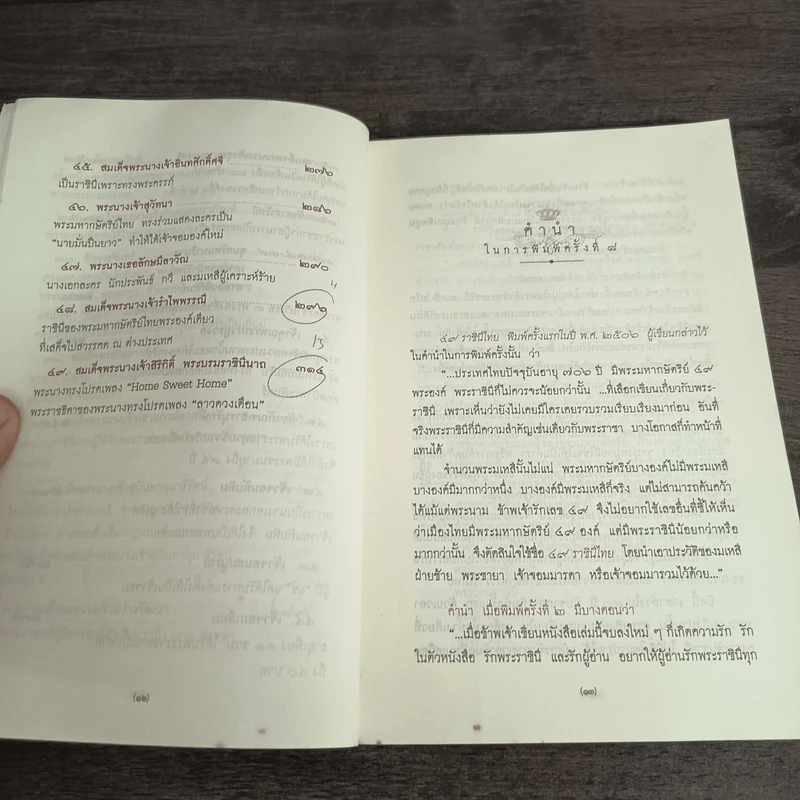 ๔๕. สมเด็จพระนางเจ้าอินทศักดิ์ศจี ๒๗๖
เป็นราชินีเพราะทรงพระครรภ์
๔๖. พระนางเจ้าสุวัทนา ๒๘๖
พระมหากษัตริย์ไทย ทรงร่วมแสดงละครเป็น
"นายมั่นปืนยาว" ทำให้ได้เจ้าจอมองค์ใหม่
๔๗. พระนางเธอลักษมีลาวัณ ๒๙๐
นางเอกละคร นักประพันธ์ กวี และมเหสีผู้เคราะห์ร้าย
๔๘. สมเด็จพระนางเจ้ารำไพพรรณี
ราชินีของพระมหากษัตริย์ไทยพระองค์เดียว
ที่เสด็จไปสวรรคต ณ ต่างประเทศ
๔๙. สมเด็จพระนางเจ้าสิริกิติ์ พระบรมราชินีนาถ ๓๑๔
พระนางทรงโปรดเพลง "Home Sweet Home"
พระราชธิดาของพระนางทรงโปรดเพลง "ลาวดวงเดือน"
(๑๒)
คำนำ
ในการพิมพ์ครั้งที่ ๘
๔๙ ราชินีไทย พิมพ์ครั้งแรกในปี พ.ศ. ๒๕๐๖ ผู้เขียนกล่าวไว้
ในคำนำในการพิมพ์ครั้งนั้น ว่า
"...ประเทศไทยปัจจุบันอายุ ๗๐๖ ปี มีพระมหากษัตริย์ ๔๙
พระองค์ พระราชินีก็ไม่ควรจะน้อยกว่านั้น ...ที่เลือกเขียนเกี่ยวกับพระ-
ราชินี เพราะเห็นว่ายังไม่เคยมีใครเคยรวบรวมเรียบเรียงมาก่อน อันที่
จริงพระราชินีก็มีความสำคัญเช่นเดียวกับพระราชา บางโอกาสก็ทำหน้าที่
แทนได้
จำนวนพระมเหสีนั้นไม่แน่ พระมหากษัตริย์บางองค์ไม่มีพระมเหสี
บางองค์มีมากกว่าหนึ่ง บางองค์มีพระมเหสีก็จริง แต่ไม่สามารถค้นคว้า
ได้แม้แต่พระนาม ข้าพเจ้ารักเลข ๔๙ จึงไม่อยากใช้เลขอื่นที่ชี้ให้เห็น
ว่าเมืองไทยมีพระมหากษัตริย์ ๔๙ องค์ แต่มีพระราชินีน้อยกว่าหรือ
มากกว่านั้น จึงตัดสินใจใช้ชื่อ ๔๙ ราชินีไทย โดยนำเอาประวัติของมเหสี
ฝ่ายซ้าย พระชายา เจ้าจอมมารดา หรือเจ้าจอมมารวมไว้ด้วย..."
คำนำ เมื่อพิมพ์ครั้งที่ ๒ มีบางตอนว่า
"...เมื่อข้าพเจ้าเขียนหนังสือเล่มนี้จบลงใหม่ ๆ ก็เกิดความรัก รัก
ในตัวหนังสือ รักพระราชินี และรักผู้อ่าน อยากให้ผู้อ่านรักพระราชินีทุก
(๑๓)